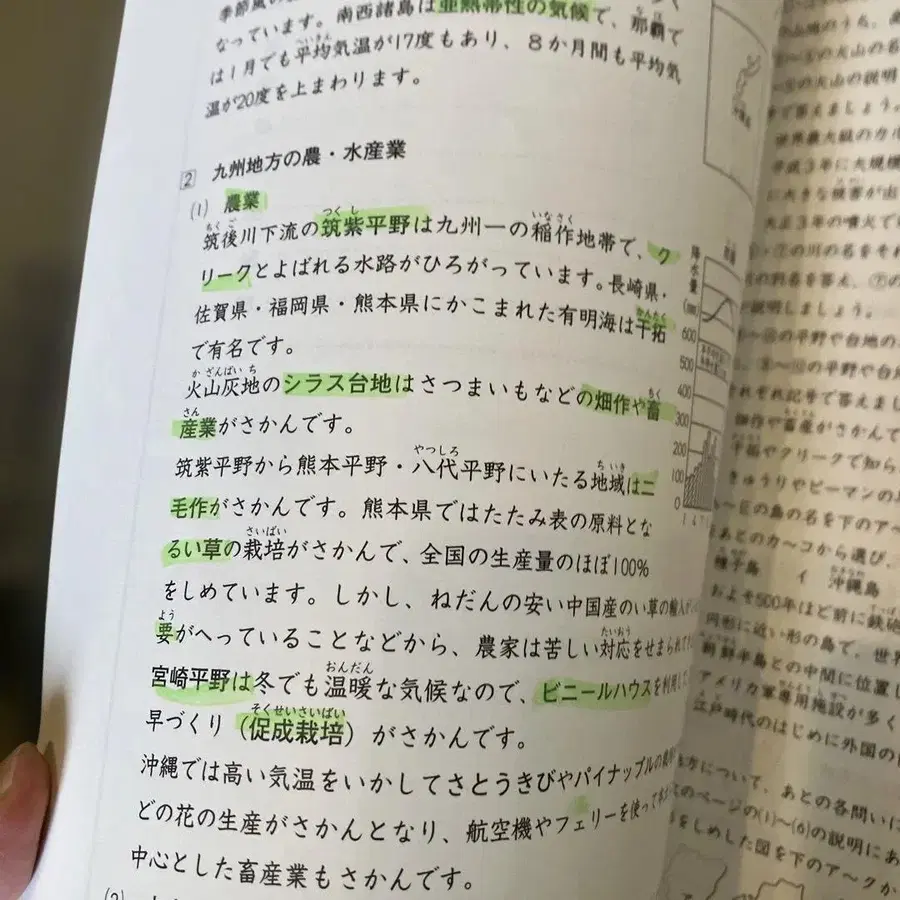 季節風の
なっています。南西諸島は亜熱帯性の気候で、那覇で
は1月でも平均気温が17度もあり、8か月間も平均気
温が20度を上まわります。
2 九州地方の農・水産業
(1) 農業
筑後川下流の筑紫平野は九州一の稲作地帯で、ク
リークとよばれる水路がひろがっています。長崎県・
佐賀県・福岡県・熊本県にかこまれた有明海は干拓
で有名です。
火山灰地のシラス台地はさつまいもなどの畑作や畜
産業がさかんです。
筑紫平野から熊本平野・八代平野にいたる地域は二
毛作がさかんです。熊本県ではたたみ表の原料とな
るい草の栽培がさかんで、全国の生産量のほぼ100%
をしめています。しかし、ねだんの安い中国産のい草の輸入が
要がへっていることなどから、農家は苦しい対応をせまられて
宮崎平野は冬でも温暖な気候なので、ビニールハウスを利用し
早づくり(促成栽培)がさかんです。
沖縄では高い気温をいかしてさとうきびやパイナップルの
どの花の生産がさかんとなり、航空機やフェリーを使って
中心とした畜産業もさかんです。
(2)
降水量
(mm)
600
500
400
300
200
100
0
1 4 7
山地のうち、
の火山の名
の火山の説明
で答えましょう。
世界最大級のカル
平成3年に大規模
に大きな被害が出
大正3年の噴火で
の川の名をそれ
の別名を答え、⑦の
説明しましょう。
の平野や台地の
の平野や台
それぞれ記号で答えまし
畑作や畜産がさかんで
干拓やクリークで知ら
きゅうりやピーマンの
の島の名を下のア〜
あとのカ〜コから選び、
種子島 イ 沖縄島
およそ500年ほど前に鉄砲
円形に近い形の島で、世界
朝鮮半島との中間に位置し
アメリカ軍専用施設が多く
江戸時代のはじめに外国の
について、あとの各問いに
のページの(1)〜(6)の説明にあ
をしめした図を下のア〜クか